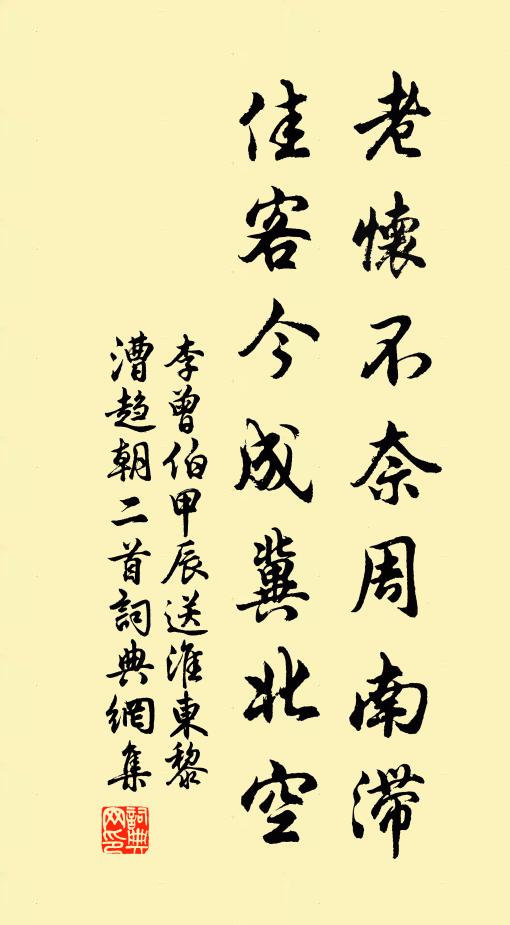 老懷不奈周南滯
佳客今成冀北空
李曾伯甲辰送淮東黎
漕趨朝二首詞典網集
詞典網印